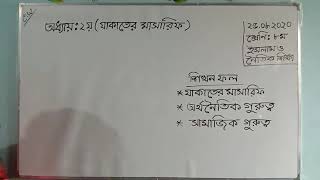 অধ্যায়: ২য় (যাকাতের মাসারিফ)
২৫.০৮.২০২০
শ্রেণি: ৮ম
ইসলাম ও
নৈতিক শিক্ষা
শিখন ফল
* যাকাতের মাসারিফ
* অর্থনৈতিক গুরুত্ব
* সামাজিক গুরুত্ব